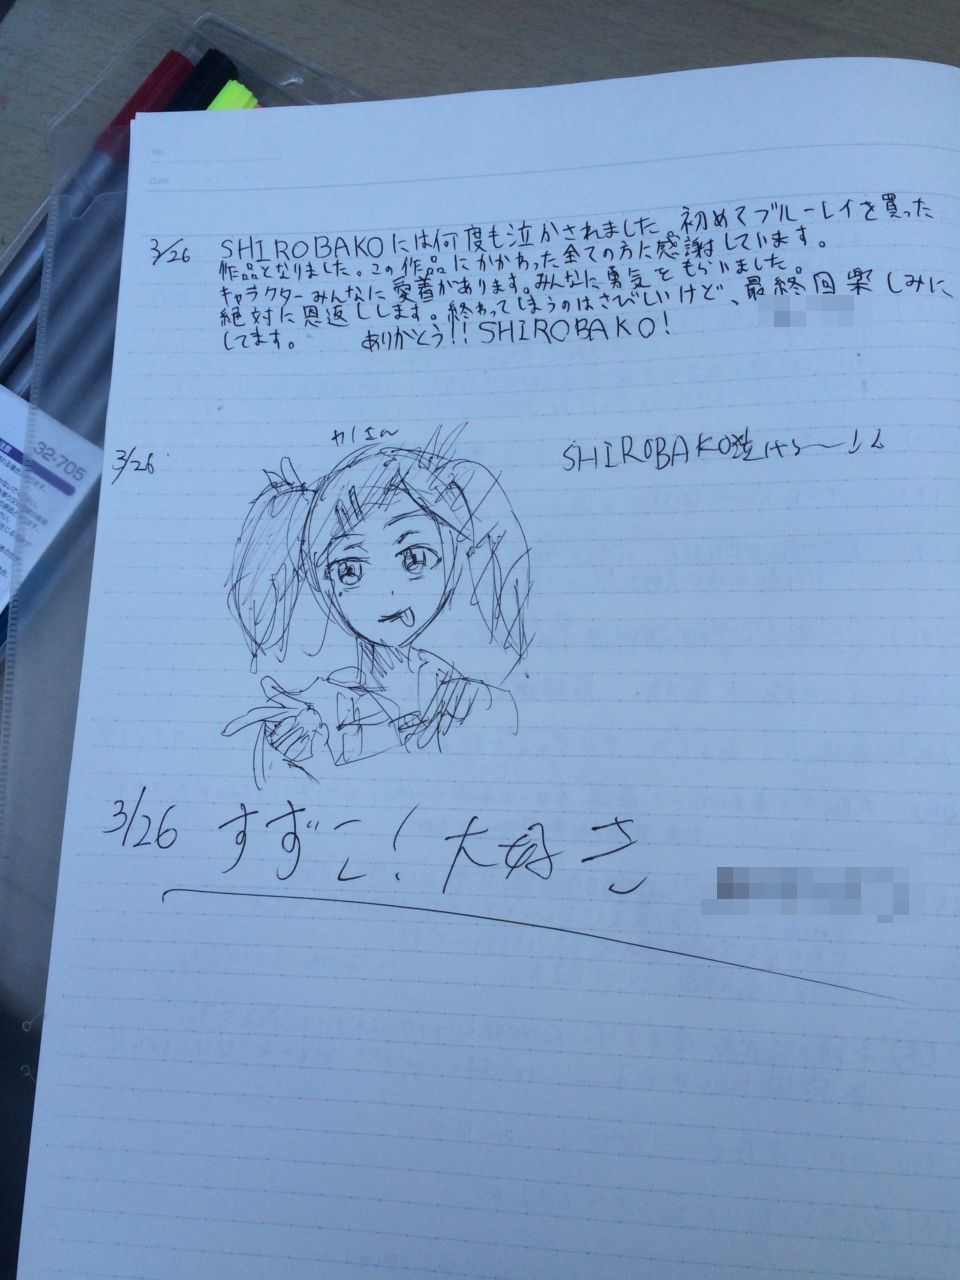 No.
Date
3/26 SHIROBAKOには何度も泣かされました。初めてブルーレイを買った
作品となりました。この作品にかかわった全ての方に感謝しています。
キャラクターみんなに愛着があります。みんなに勇気をもらいました。
絶対に恩返しします。終わってしまうのはさびしいけど、最終回楽しみに
してます。 ありがとう!!SHIROBAKO!
3/26
SHIROBAKO泣ける〜!!
3/26 すずこ!大好き
32-705